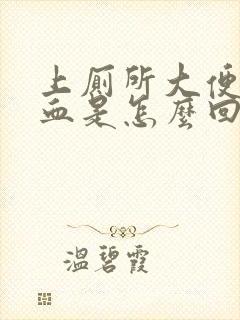 上厕所大便
血是怎麼回
溫碧霞